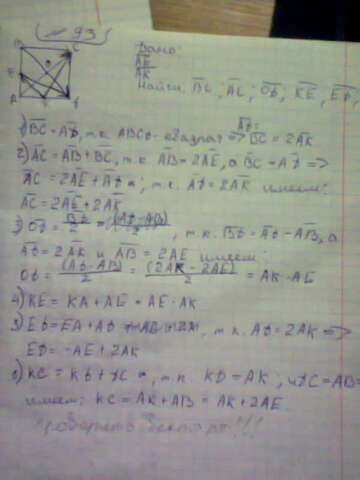 № 93
Дано:
AE
AK
Найти: BC; AC; OD; KE; ED
AD=
1) BC = AD, т.к. ABCD - квадрат => BC = 2AK
2) AC = AB + BC, т.к. AB = 2AE, а BC = AD =>
AC = 2AE + AD; т.к. AD = 2AK имеем:
AC = 2AE + 2AK
3) OD = BD/2 = (AD-AB)/2, т.к. BD = AD - AB, а
AD = 2AK и AB = 2AE имеем:
OD = (AD-AB)/2 = (2AK-2AE)/2 = AK-AE
4) KE = KA + AE = AE - AK
5) ED = EA + AD, т.к. AD = 2AK =>
ED = -AE + 2AK
6) KC = KD + DC, т.к. KD = AK; DC = AB =
имеем: KC = AK + AB = AK + 2AE
Проверить вектора!!!